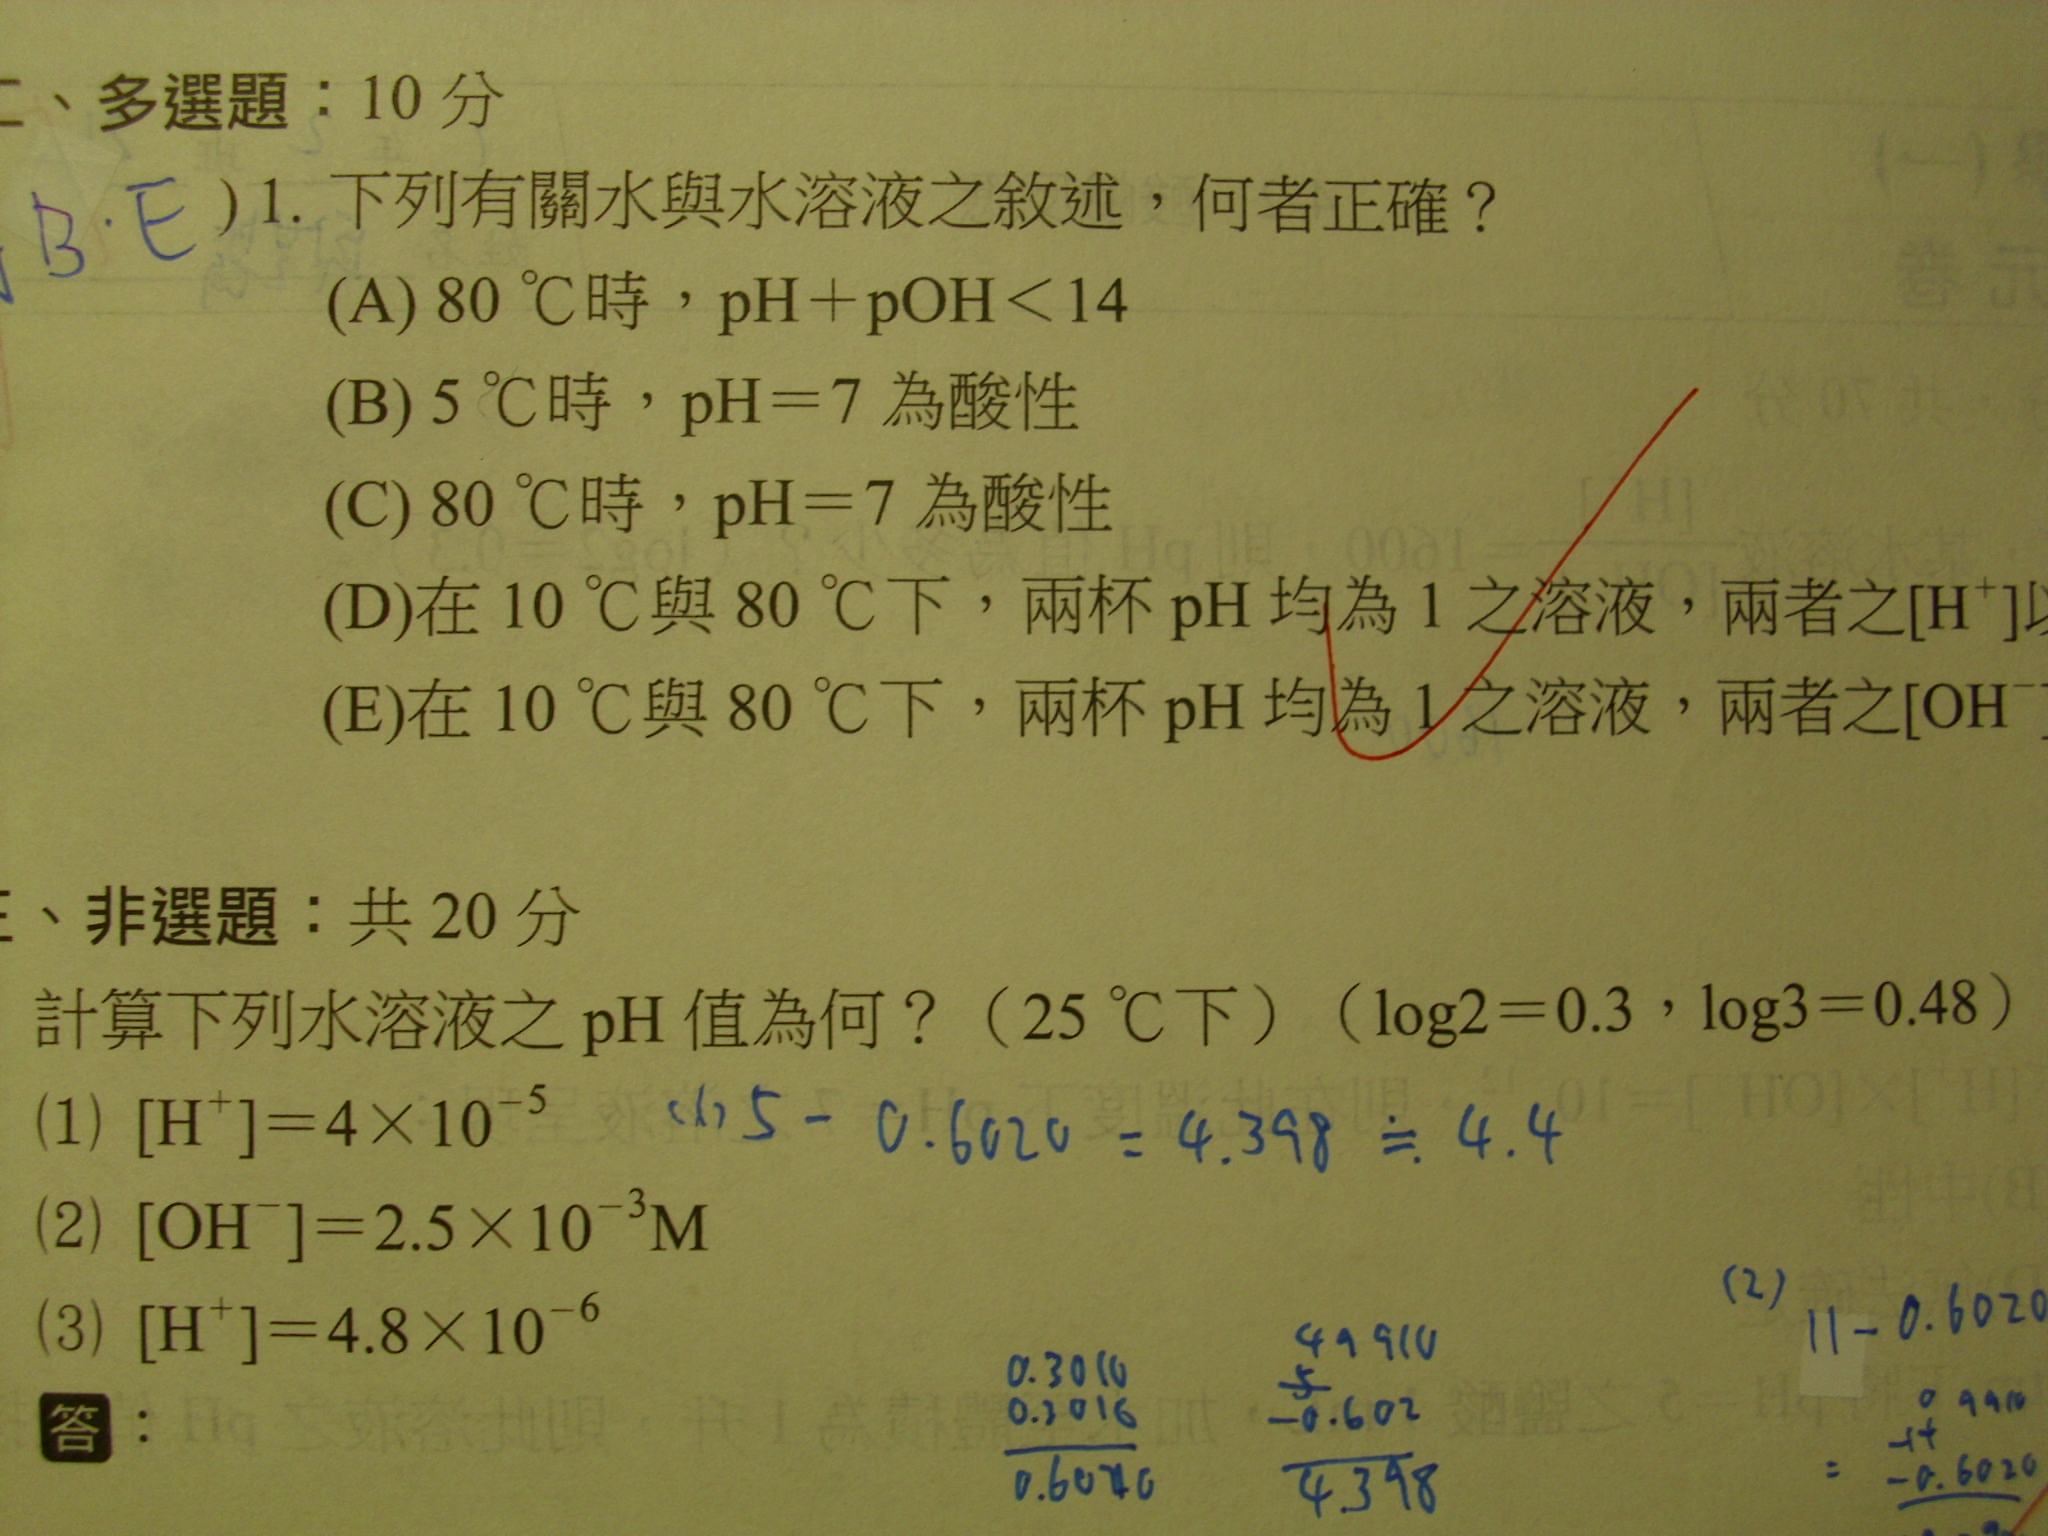 、多選題：10 分
B.E ) 1. 下列有關水與水溶液之敘述，何者正確？
(A) 80 ℃時，pH＋pOH＜14
(B) 5 ℃時，pH＝7 為酸性
(C) 80 ℃時，pH＝7 為酸性
(D)在 10 ℃與 80 ℃下，兩杯 pH 均為 1 之溶液，兩者之[H⁺]以
(E)在 10 ℃與 80 ℃下，兩杯 pH 均為 1 之溶液，兩者之[OH⁻]
三、非選題：共 20 分
計算下列水溶液之 pH 值為何？（25 ℃下）（log2＝0.3，log3＝0.48）
(1) [H⁺]＝4×10⁻⁵ (1) 5 - 0.6020 = 4.398 ≒ 4.4
(2) [OH⁻]＝2.5×10⁻³M
(3) [H⁺]＝4.8×10⁻⁶
(2) 11 - 0.6020
答：
0.3010
0.3010
4 9 9 10
5
-0.602
4.398
=
-0.6020